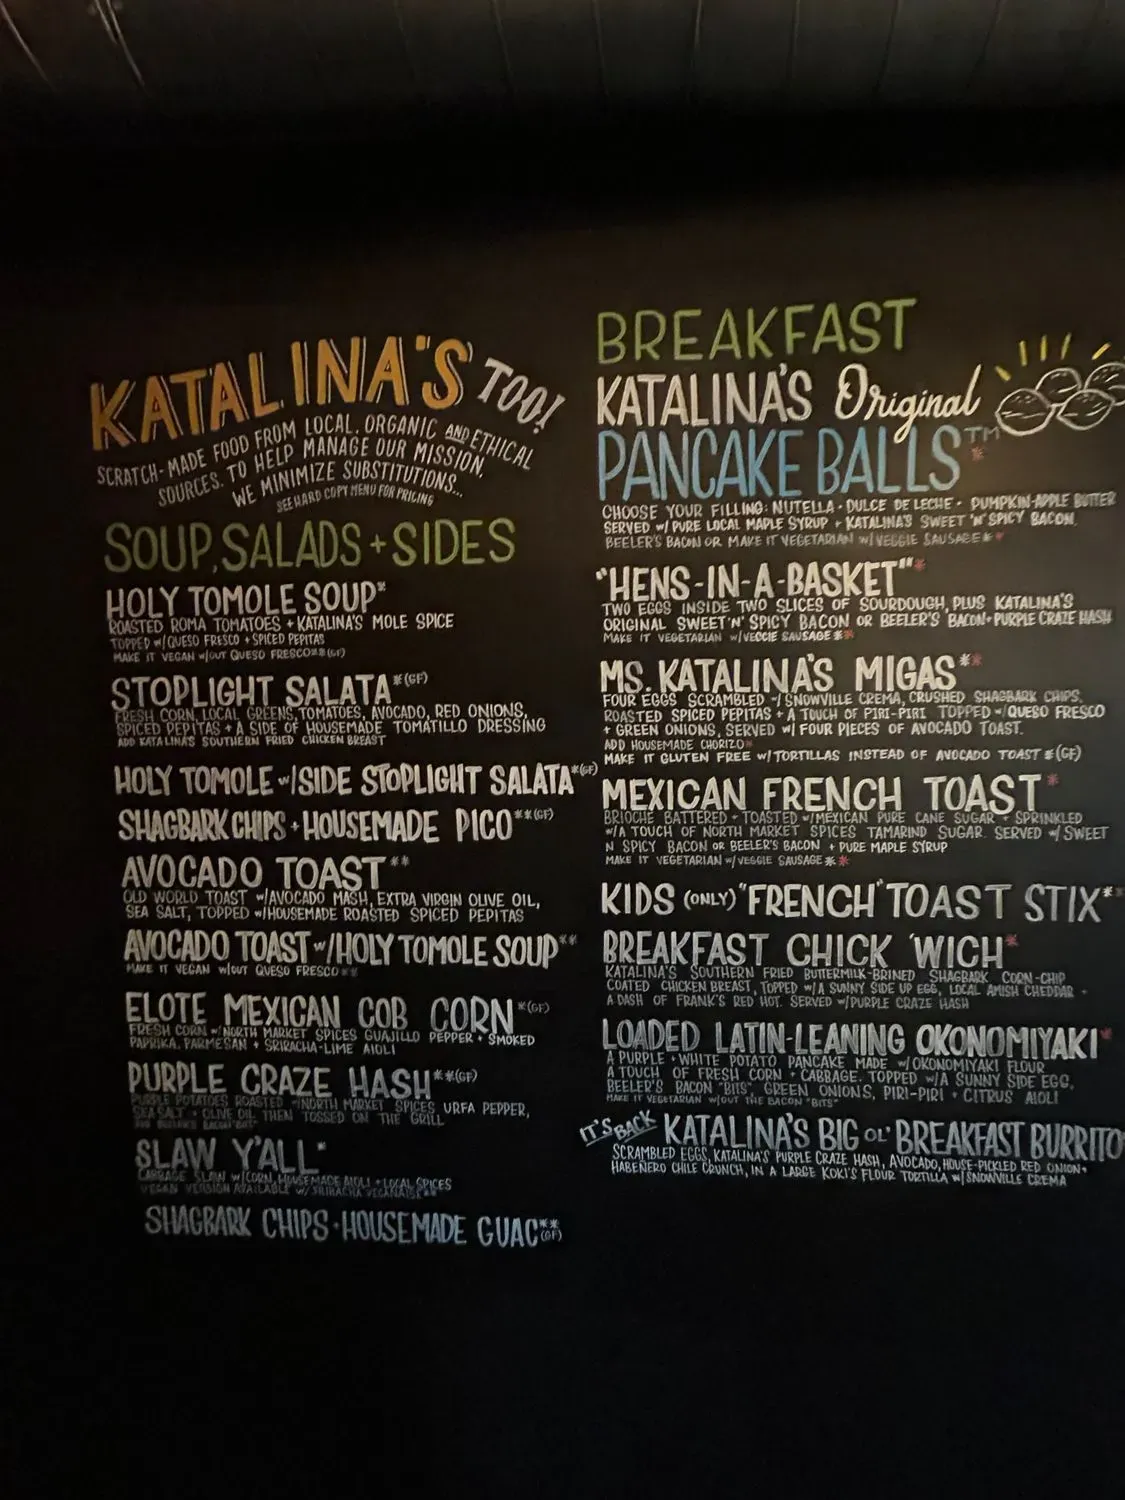 KATALINA'S TOO!
SCRATCH-MADE FOOD FROM LOCAL, ORGANIC AND ETHICAL
SOURCES. TO HELP MANAGE OUR MISSION,
WE MINIMIZE SUBSTITUTIONS...
SEE HARD COPY MENU FOR PRICING
SOUP, SALADS + SIDES
HOLY TOMOLE SOUP*
ROASTED ROMA TOMATOES + KATALINA'S MOLE SPICE
TOPPED w/QUESO FRESCO + SPICED PEPITAS
MAKE IT VEGAN w/OUT QUESO FRESCO** (GF)
STOPLIGHT SALATA *(GF)
FRESH CORN, LOCAL GREENS, TOMATOES, AVOCADO, RED ONIONS,
SPICED PEPITAS + A SIDE OF HOUSEMADE TOMATILLO DRESSING
ADD KATALINA'S SOUTHERN FRIED CHICKEN BREAST
HOLY TOMOLE w/SIDE STOPLIGHT SALATA *(GF)
SHAGBARK CHIPS + HOUSEMADE PICO **(GF)
AVOCADO TOAST **
OLD WORLD TOAST w/AVOCADO MASH, EXTRA VIRGIN OLIVE OIL,
SEA SALT, TOPPED w/HOUSEMADE ROASTED SPICED PEPITAS
AVOCADO TOAST w/HOLY TOMOLE SOUP**
MAKE IT VEGAN w/OUT QUESO FRESCO**
ELOTE MEXICAN COB CORN *(GF)
FRESH CORN w/NORTH MARKET SPICES GUAJILLO PEPPER + SMOKED
PAPRIKA, PARMESAN + SRIRACHA-LIME AIOLI
PURPLE CRAZE HASH **(GF)
PURPLE POTATOES ROASTED w/NORTH MARKET SPICES URFA PEPPER,
SEA SALT + OLIVE OIL THEN TOSSED ON THE GRILL
SLAW Y'ALL *
CABBAGE SLAW w/CORN, HOUSEMADE AIOLI + LOCAL SPICES
VEGAN VERSION AVAILABLE w/ SRIRACHA VEGANAISE**
SHAGBARK CHIPS + HOUSEMADE GUAC **(GF)
BREAKFAST
KATALINA'S Original
PANCAKE BALLS™ *
CHOOSE YOUR FILLING: NUTELLA • DULCE DE LECHE • PUMPKIN-APPLE BUTTER
SERVED w/ PURE LOCAL MAPLE SYRUP + KATALINA'S SWEET 'N' SPICY BACON,
BEELER'S BACON OR MAKE IT VEGETARIAN w/VEGGIE SAUSAGE* *
"HENS-IN-A-BASKET" *
TWO EGGS INSIDE TWO SLICES OF SOURDOUGH, PLUS KATALINA'S
ORIGINAL SWEET 'N' SPICY BACON OR BEELER'S BACON + PURPLE CRAZE HASH
MAKE IT VEGETARIAN w/VEGGIE SAUSAGE * *
MS. KATALINA'S MIGAS **
FOUR EGGS SCRAMBLED w/SNOWVILLE CREMA, CRUSHED SHAGBARK CHIPS,
ROASTED SPICED PEPITAS + A TOUCH OF PIRI-PIRI TOPPED w/QUESO FRESCO
+ GREEN ONIONS, SERVED w/ FOUR PIECES OF AVOCADO TOAST.
ADD HOUSEMADE CHORIZO*
MAKE IT GLUTEN FREE w/TORTILLAS INSTEAD OF AVOCADO TOAST *(GF)
MEXICAN FRENCH TOAST *
BRIOCHE BATTERED + TOASTED w/MEXICAN PURE CANE SUGAR + SPRINKLED
w/A TOUCH OF NORTH MARKET SPICES TAMARIND SUGAR. SERVED w/ SWEET
N SPICY BACON OR BEELER'S BACON + PURE MAPLE SYRUP
MAKE IT VEGETARIAN w/VEGGIE SAUSAGE * *
KIDS (ONLY) "FRENCH" TOAST STIX **
BREAKFAST CHICK 'WICH *
KATALINA'S SOUTHERN FRIED BUTTERMILK-BRINED SHAGBARK CORN-CHIP
COATED CHICKEN BREAST, TOPPED w/A SUNNY SIDE UP EGG, LOCAL AMISH CHEDDAR +
A DASH OF FRANK'S RED HOT. SERVED w/PURPLE CRAZE HASH
LOADED LATIN-LEANING OKONOMIYAKI *
A PURPLE + WHITE POTATO PANCAKE MADE w/OKONOMIYAKI FLOUR
A TOUCH OF FRESH CORN + CABBAGE. TOPPED w/A SUNNY SIDE EGG,
BEELER'S BACON "BITS", GREEN ONIONS, PIRI-PIRI + CITRUS AIOLI
MAKE IT VEGETARIAN w/OUT THE BACON "BITS"
IT'S BACK KATALINA'S BIG OL' BREAKFAST BURRITO
SCRAMBLED EGGS, KATALINA'S PURPLE CRAZE HASH, AVOCADO, HOUSE-PICKLED RED ONION +
HABEÑERO CHILE CRUNCH, IN A LARGE KOKI'S FLOUR TORTILLA w/SNOWVILLE CREMA